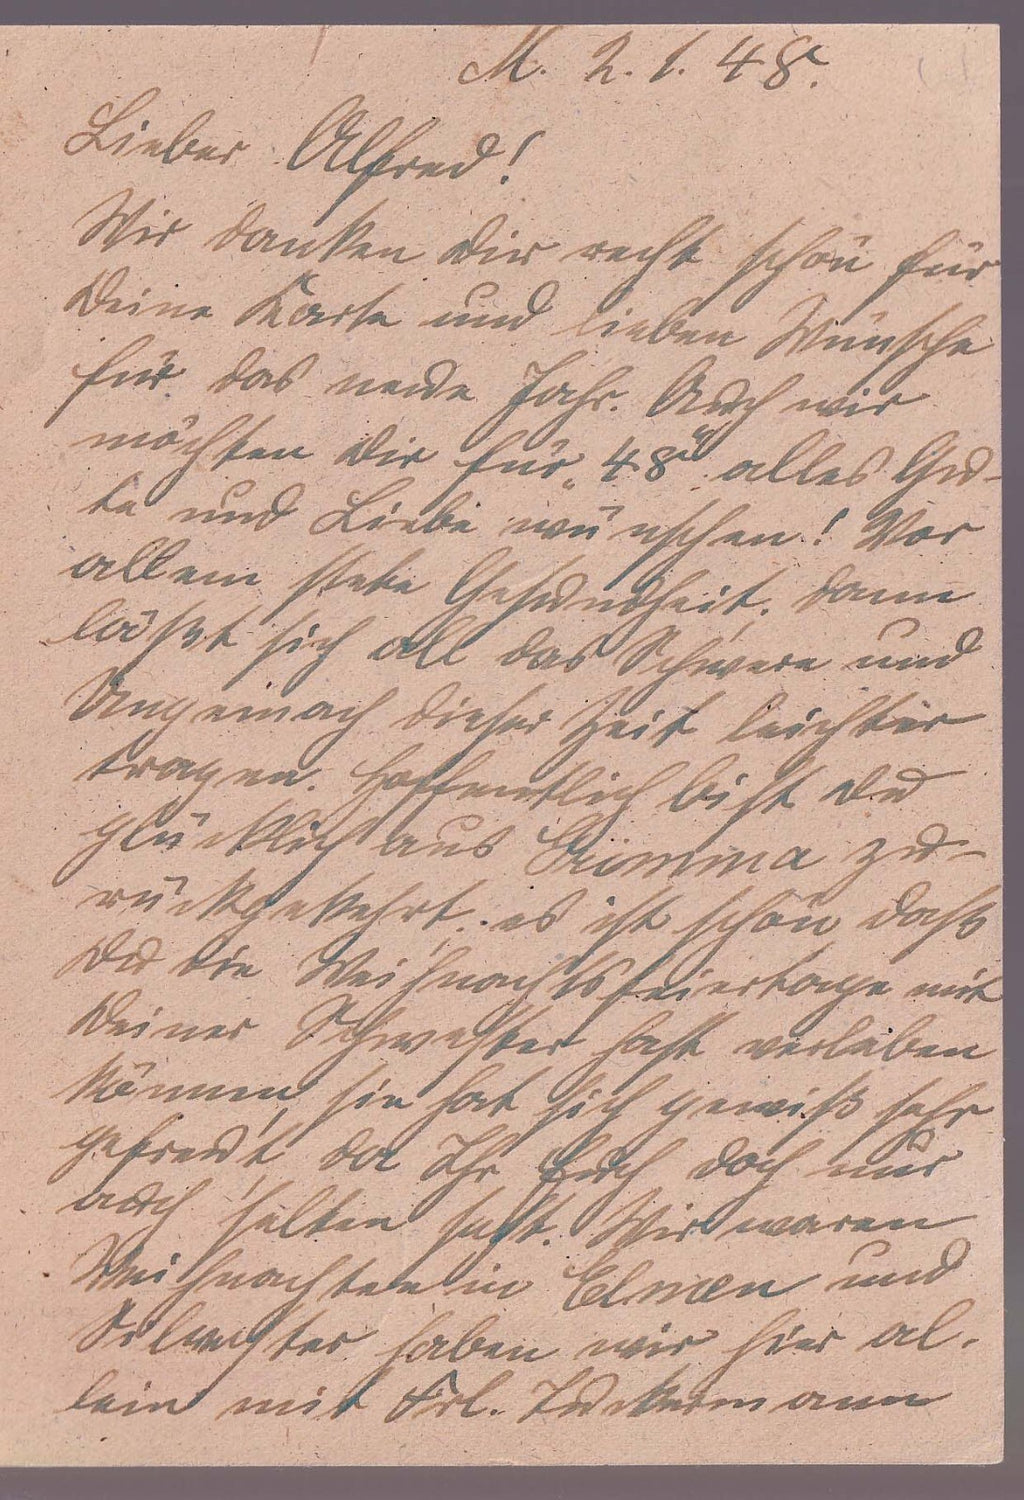 M. 2. 1. 48.
Lieber Alfred!
Wir danken Dir recht schön für
Deine Karte und lieben Wünsche
für das neue Jahr. Auch wir
möchten Dir für „48“ alles Gu-
te und Liebe wünschen! Vor
allem stete Gesundheit, dann
läßt sich all das Schwere und
Ungemach dieser Zeit leichter
tragen. Hoffentlich bist Du
glücklich aus Grimma zu-
rückgekehrt. es ist schön daß
Du die Weihnachtsfeiertage mit
Deiner Schwester hast verleben
können, sie hat sich gewiß sehr
gefreut, da Ihr Euch doch nur
auch selten seht. Wir waren
Weihnachten in Elmen und
Silvester haben wir hier al-
lein mit Frl.